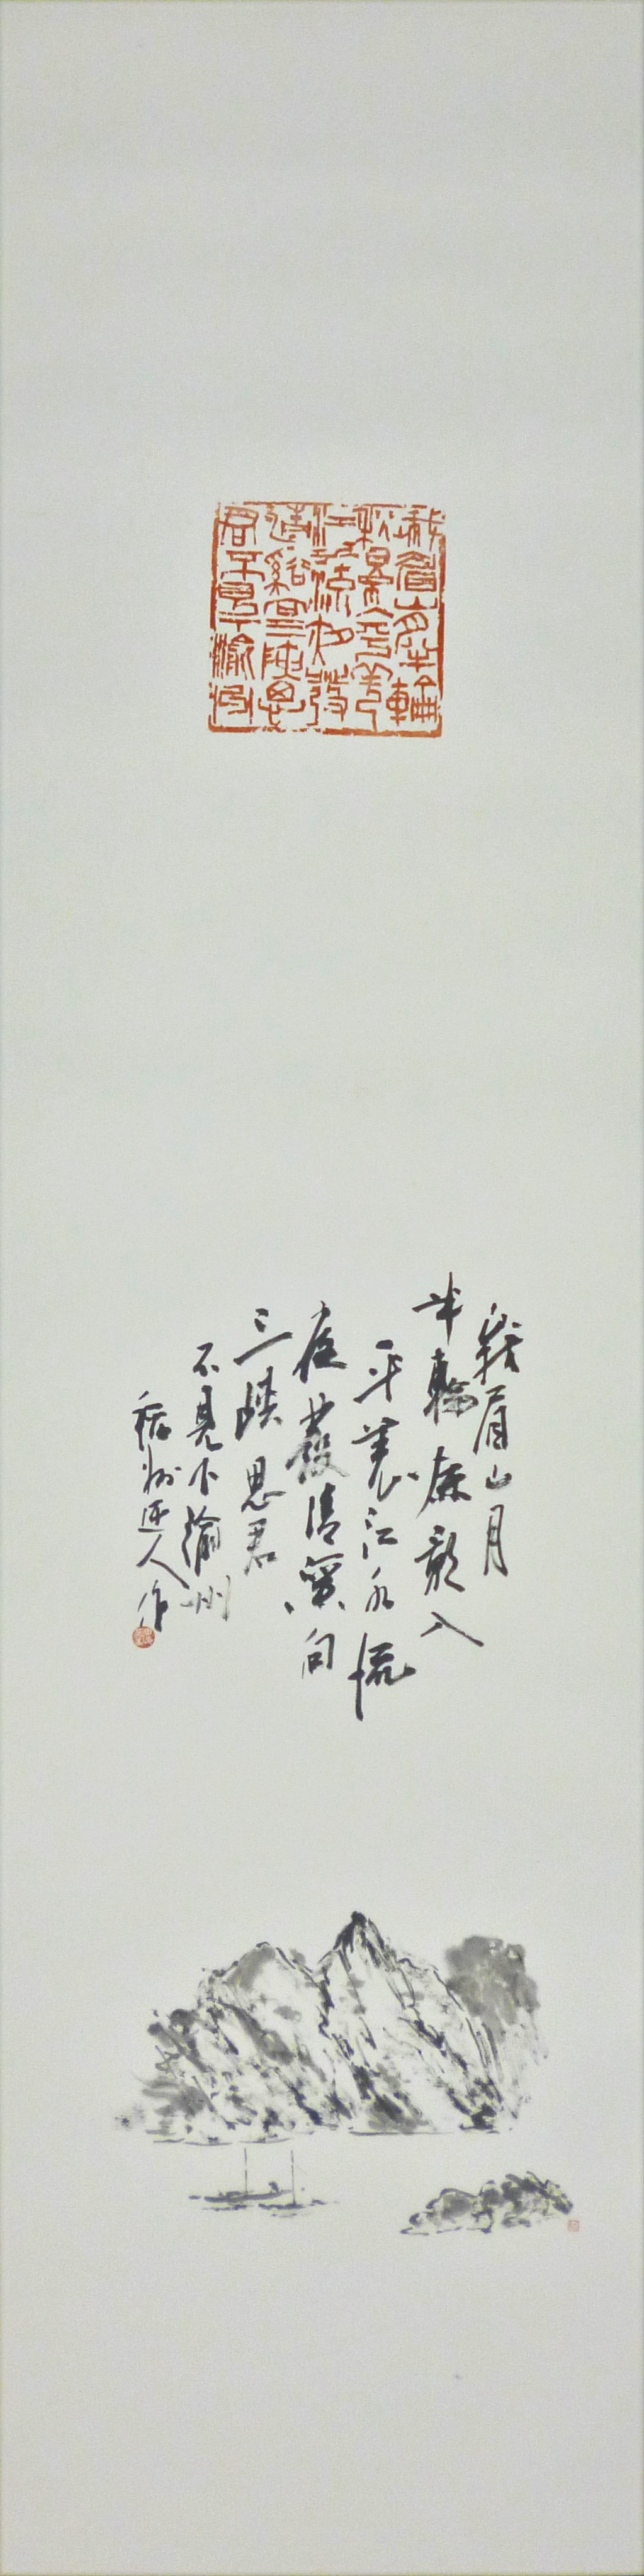 峨眉山月半輪
秋影入平羌
江水流夜發
清谿向三峽思
君不見下渝州
峨眉山月
半輪秋影入
平羌江水流
夜發清溪向
三峽思君
不見下渝州
人作